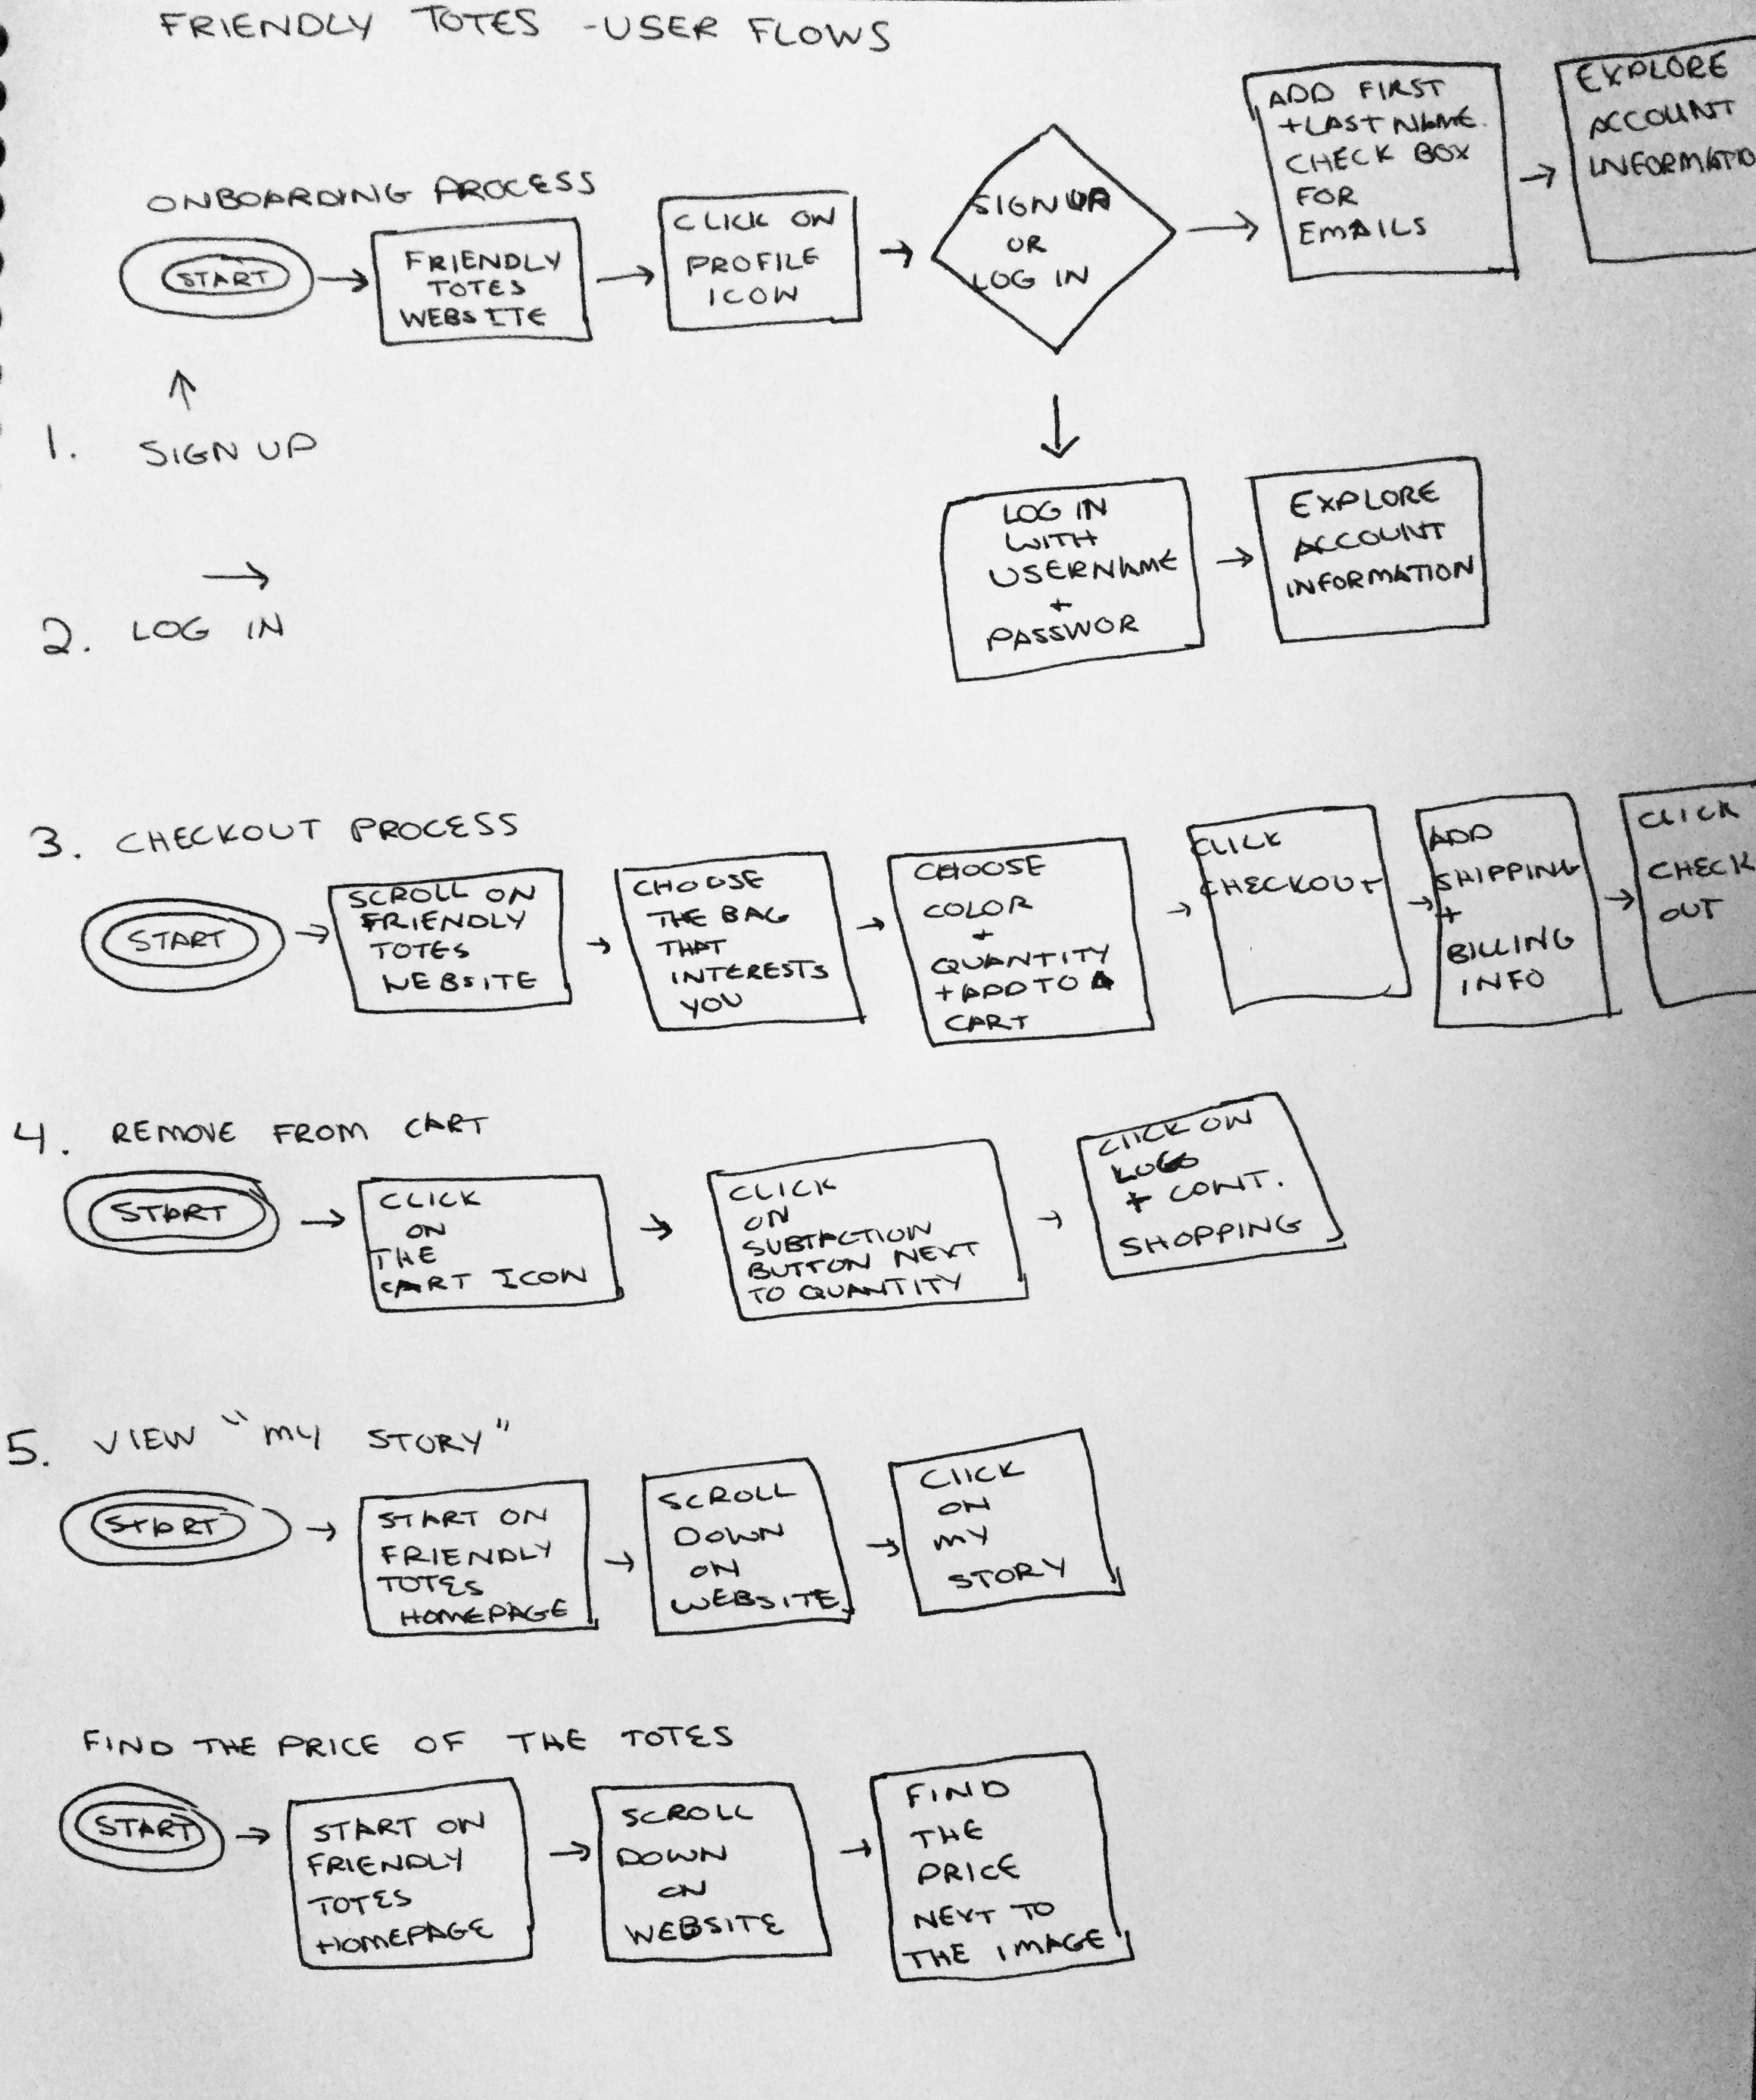 FRIENDLY TOTES - USER FLOWS
ONBOARDING PROCESS
START
FRIENDLY
TOTES
WEBSITE
CLICK ON
PROFILE
ICON
SIGN UP
OR
LOG IN
ADD FIRST
+ LAST NAME.
CHECK BOX
FOR
EMAILS
EXPLORE
ACCOUNT
INFORMATIO
1. SIGN UP
LOG IN
WITH
USERNAME
+
PASSWOR
EXPLORE
ACCOUNT
INFORMATION
2. LOG IN
3. CHECKOUT PROCESS
START
SCROLL ON
FRIENDLY
TOTES
WEBSITE
CHOOSE
THE BAG
THAT
INTERESTS
YOU
CHOOSE
COLOR
+
QUANTITY
+ ADD TO
CART
CLICK
CHECKOUT
ADD
SHIPPING
+
BILLING
INFO
CLICK
CHECK
OUT
4. REMOVE FROM CART
START
CLICK
ON
THE
CART ICON
CLICK
ON
SUBTACTION
BUTTON NEXT
TO QUANTITY
CLICK ON
LOGO
+ CONT.
SHOPPING
5. VIEW "MY STORY"
START
START ON
FRIENDLY
TOTES
HOMEPAGE
SCROLL
DOWN
ON
WEBSITE
CLICK
ON
MY
STORY
FIND THE PRICE OF THE TOTES
START
START ON
FRIENDLY
TOTES
HOMEPAGE
SCROLL
DOWN
ON
WEBSITE
FIND
THE
PRICE
NEXT TO
THE IMAGE